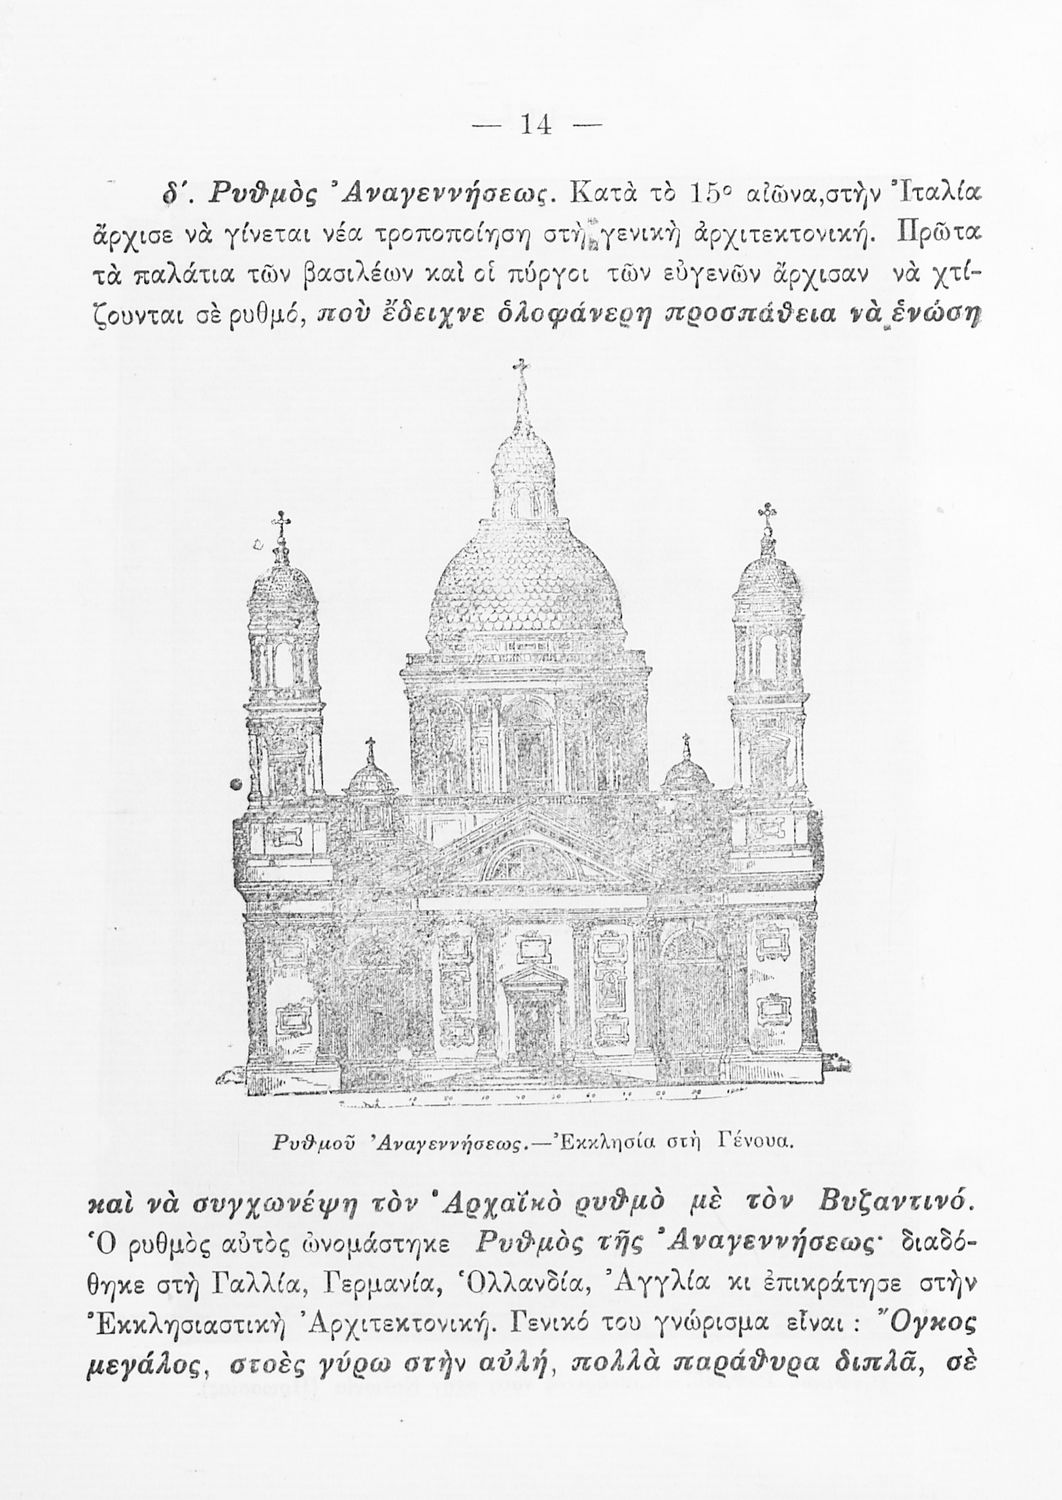 — 14 —
δ΄. Ρυθμὸς Ἀναγεννήσεως. Κατὰ τὸ 15ο αἰῶνα,στὴν Ἰταλία
ἄρχισε νὰ γίνεται νέα τροποποίηση στὴ γενικὴ ἀρχιτεκτονική. Πρῶτα
τὰ παλάτια τῶν βασιλέων καὶ οἱ πύργοι τῶν εὐγενῶν ἄρχισαν νὰ χτί-
ζουνται σὲ ρυθμό, ποὺ ἔδειχνε ὁλοφάνερη προσπάθεια νὰ ἑνώση
10 20 30 40 50 60 70 80 90 100
Ρυθμοῦ Ἀναγεννήσεως.—Ἐκκλησία στὴ Γένουα.
καὶ νὰ συγχωνέψη τὸν Ἀρχαϊκὸ ρυθμὸ μὲ τὸν Βυζαντινό.
Ὁ ρυθμὸς αὐτὸς ὠνομάστηκε Ρυθμὸς τῆς Ἀναγεννήσεως· διαδό-
θηκε στὴ Γαλλία, Γερμανία, Ὁλλανδία, Ἀγγλία κι ἐπικράτησε στὴν
Ἐκκλησιαστικὴ Ἀρχιτεκτονική. Γενικό του γνώρισμα εἶναι : Ὄγκος
μεγάλος, στοὲς γύρω στὴν αὐλή, πολλὰ παράθυρα διπλᾶ, σὲ